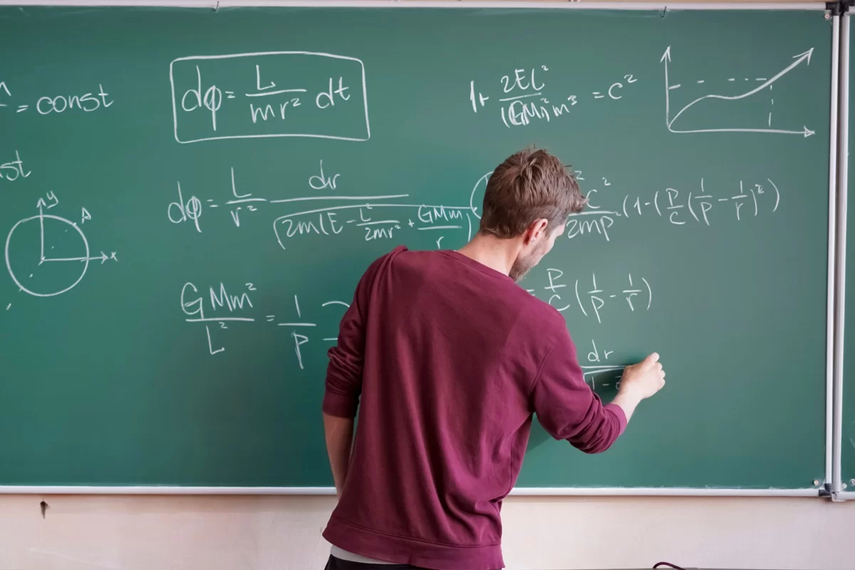 = const
dφ = L/mr² dt
1+ 2EL²/(GM)²m³ = C²
st
y
x
dφ = L/r² dr/√2m(E - L²/2mr² + GMm/r
C²/2mp (1-(P/C(1/P - 1/r)²)
GMm²/L² = 1/P
= P/C (1/P - 1/r)
dr